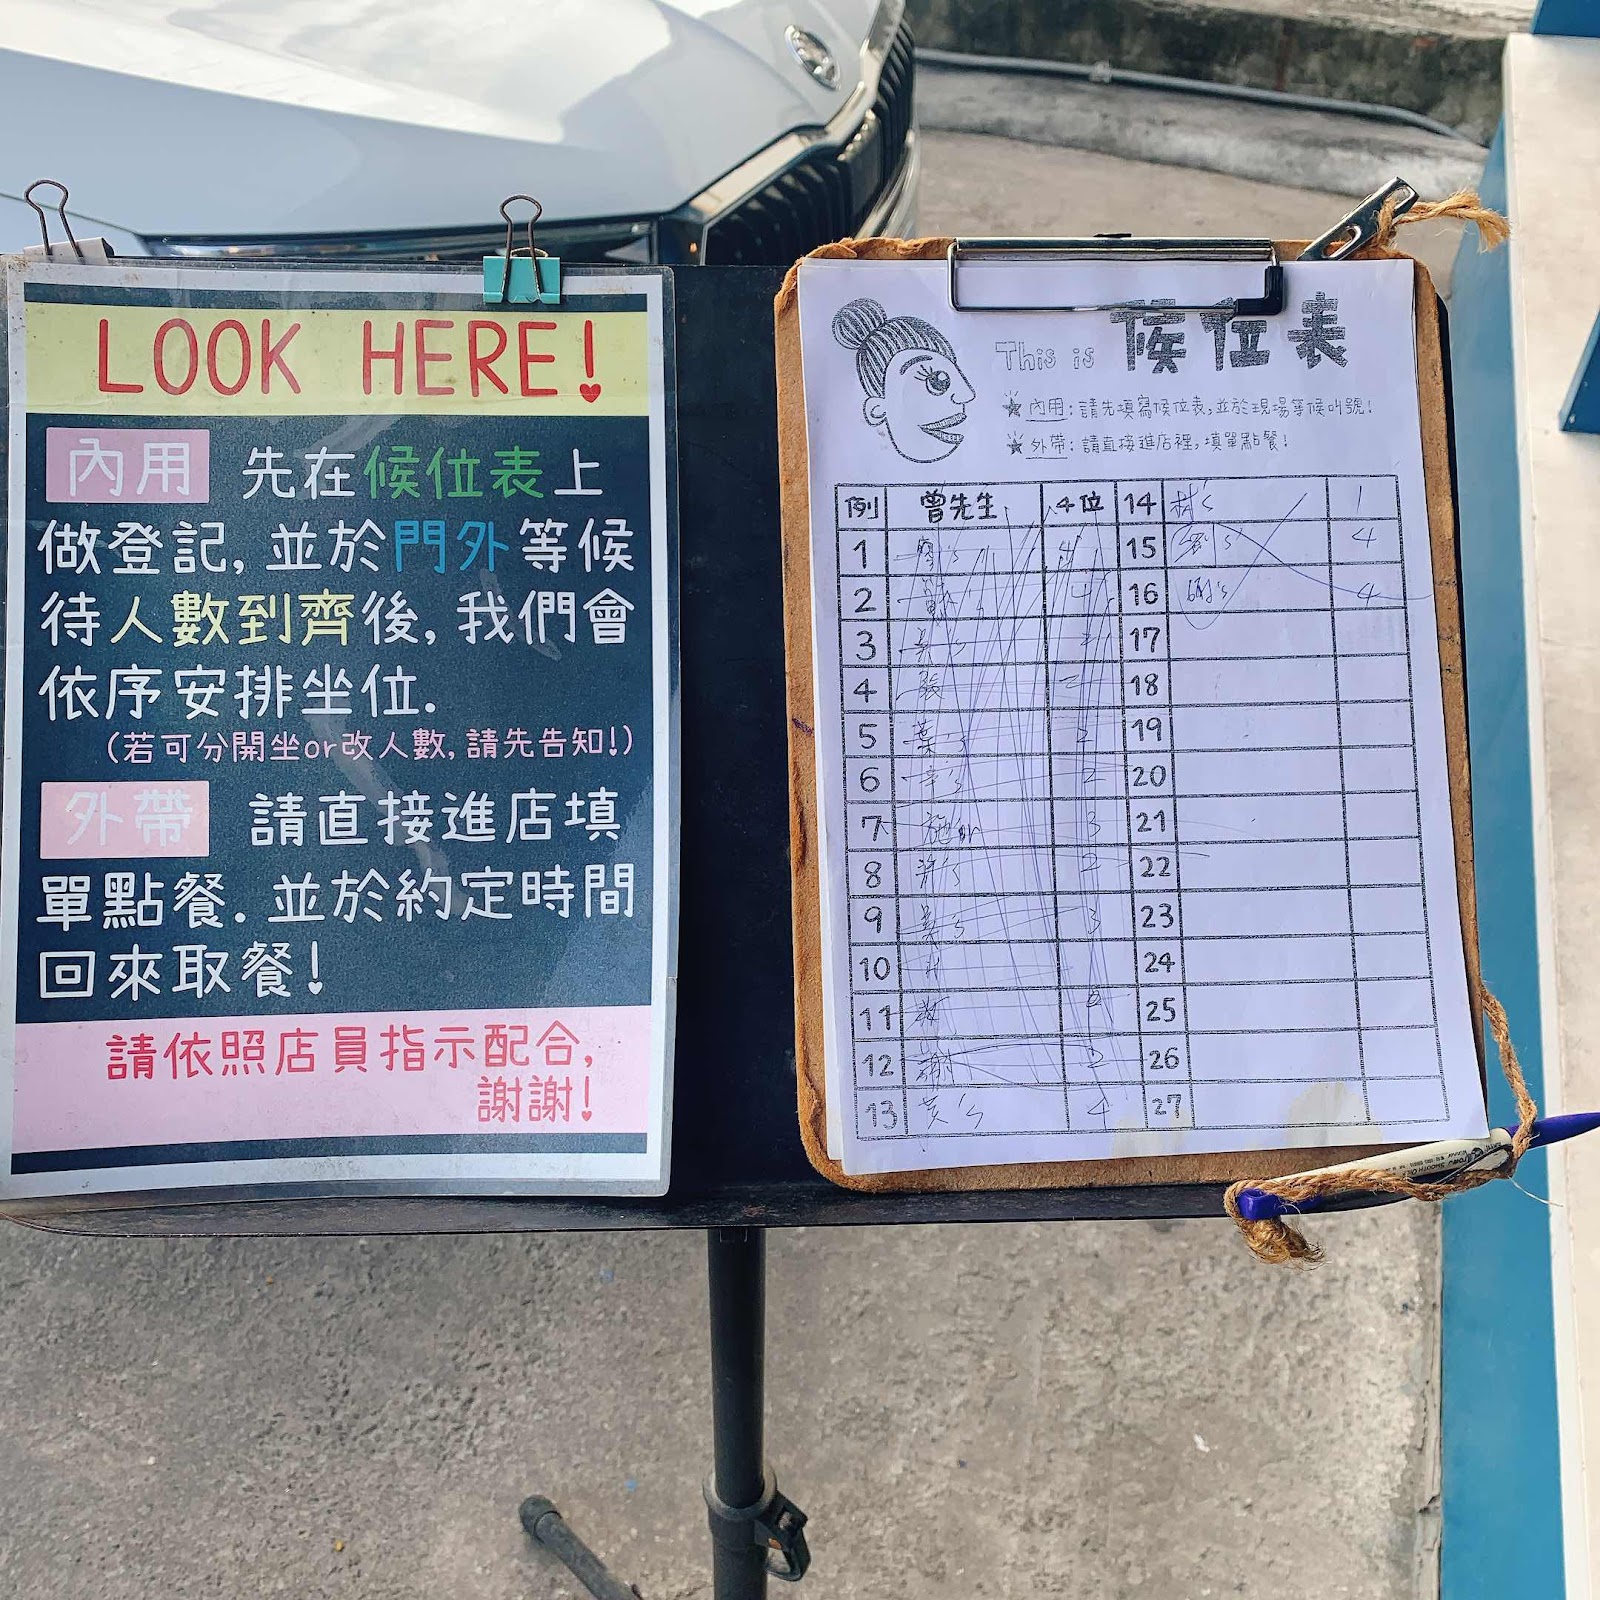 LOOK HERE!
內用 先在候位表上
做登記, 並於門外等候
待人數到齊後, 我們會
依序安排坐位.
(若可分開坐or改人數, 請先告知!)
外帶 請直接進店填
單點餐. 並於約定時間
回來取餐!
請依照店員指示配合,
謝謝!
This is 候位表
內用: 請先填寫候位表, 並於現場等候叫號!
外帶: 請直接進店裡, 填單點餐!
例 曾先生 4位 14 林's 1
1 4 15 劉's 4
2 4 16 謝's 4
3 17
4 張 2 18
5 葉's 2 19
6 2 20
7 施 3 21
8 2 22
9 3 23
10 24
11 25
12 謝 2 26
13 黃's 4 27